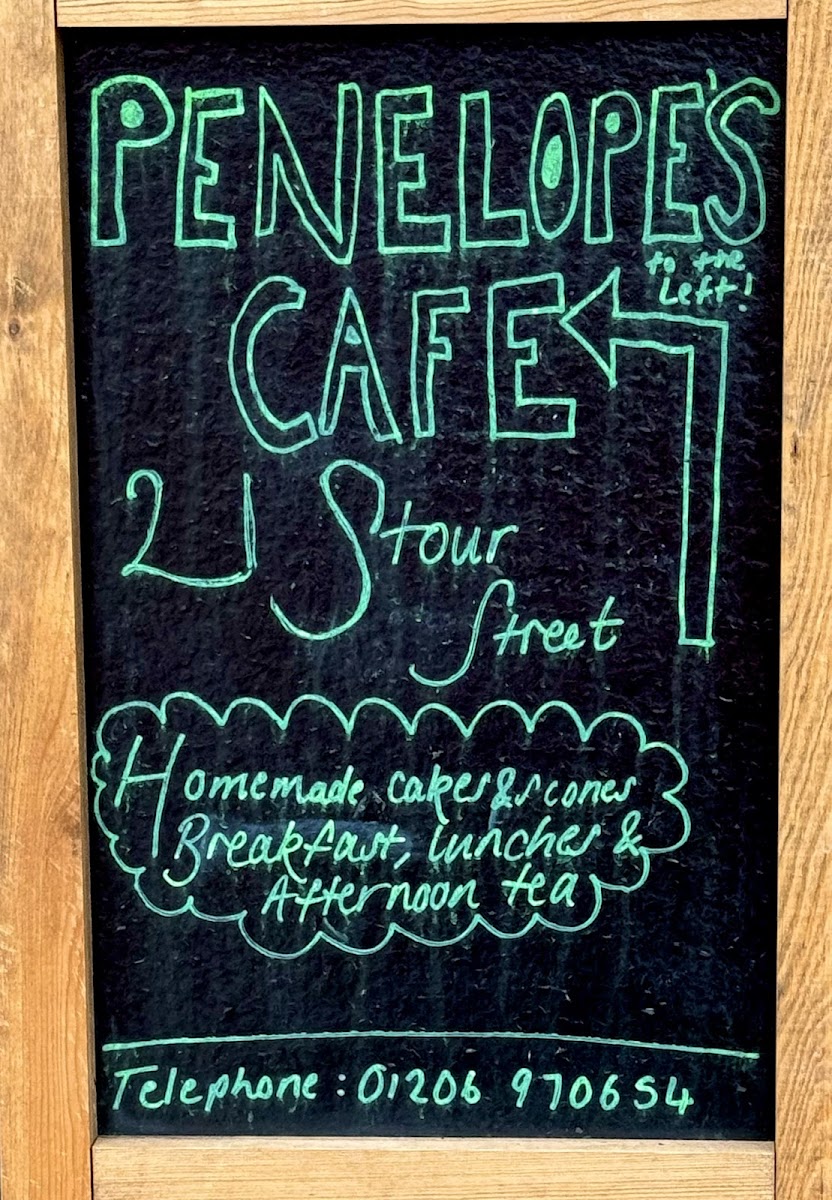 PENELOPE'S
to the
Left!
CAFE
21 Stour
Street
Homemade cakes & scones
Breakfast, lunches &
Afternoon tea
Telephone : 01206 970654